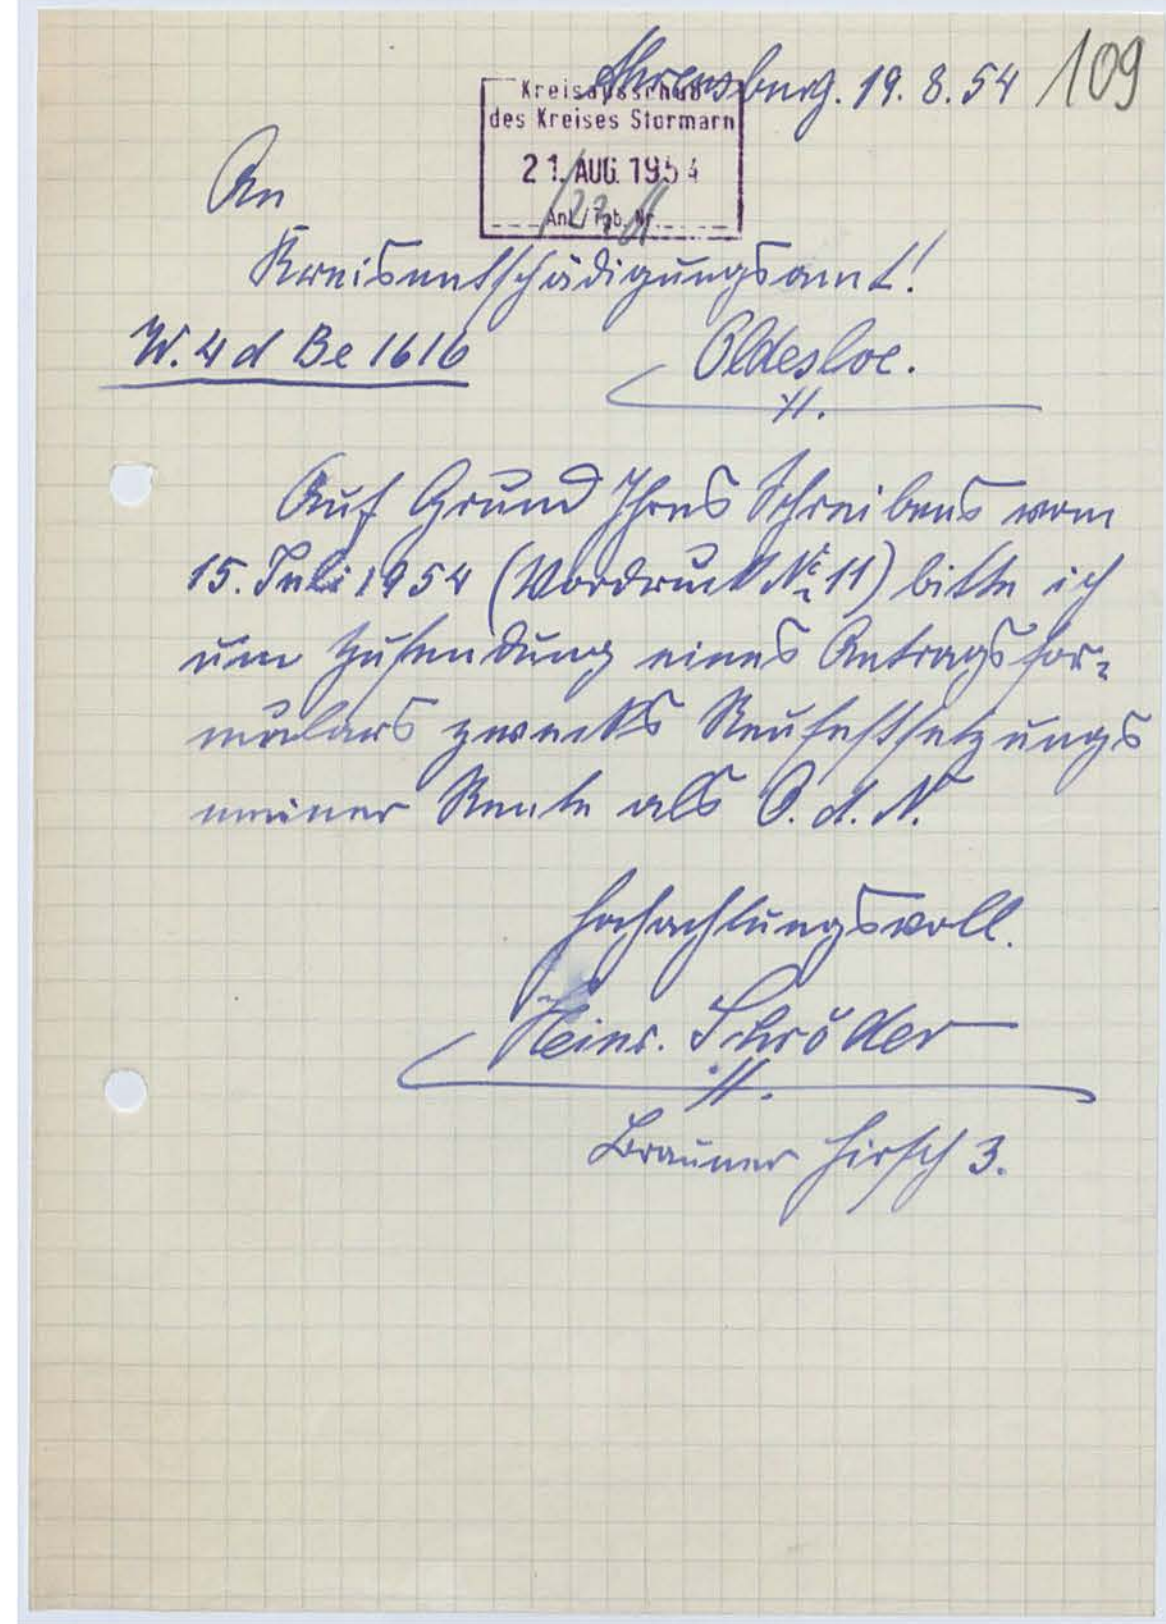 Ahrensburg. 19. 8. 54
109
Kreisausschuß
des Kreises Stormarn
21. AUG. 1954
Anl./Tgb. Nr.
An
Kreisentschädigungsamt!
W. 4 d Be 1616
Oldesloe.
Auf Grund Ihres Schreibens vom
15. Juli 1954 (Vordruck № 11) bitte ich
um Zusendung eines Antragsfor-
mulars zwecks Neufestsetzungs
meiner Rente als O. d. N.
Hochachtungsvoll.
Heinr. Schröder
Brauner Hirsch 3.